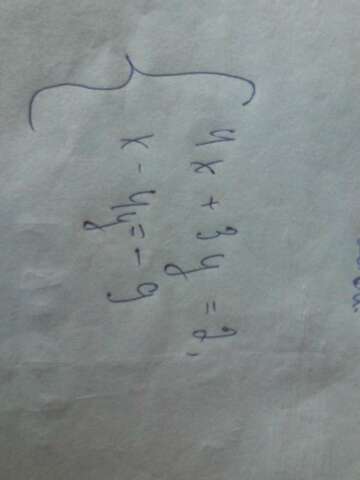 { 4x + 3y = 2,
x - 4y = - 9